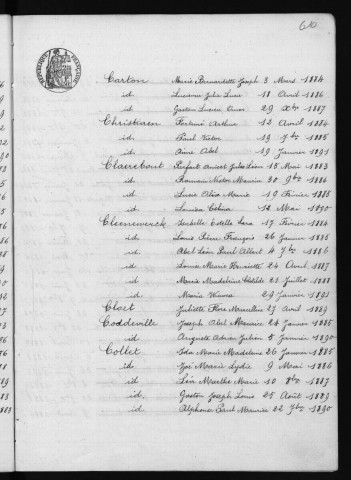 610
RÉPUBLIQUE FRANÇAISE
Carton Marie Bernardette Joseph 3 Mars 1884
id. Lucienne Julie Luce 18 Avril 1886
id. Gaston Lucien Omer 29 Xbre 1887
Christiaen Fortuné Arthur 12 Avril 1884
id. Paul Victor 19 1885
id. Aimé Abel 19 Janvier 1891
Clairebout Parfait Anicet Jules Léon 15 Mai 1883
id. Romain Nestor Maurice 30 9bre 1886
id. Lucie Alix Marie 19 Février 1888
id. Louise 12 Mai 1890
Cleenewerck Isabelle Estelle Sara 17 Février 1884
id. Louis Pierre François 26 Janvier 1885
id. Abel Léon Paul Albert 4 7bre 1886
id. Louise Marie Henriette 24 Avril 1887
id. Marie Madeleine Clotilde 23 Juillet 1888
id. Marie Etienne 29 Janvier 1893
Cloët Juliette Flore Marcelline 27 Avril 1889
Coddeville Joseph Abel Maurice 24 Janvier 1885
id. Auguste Adrien Julien 5 Janvier 1890
Collet Ida Marie Madeleine 26 Janvier 1885
id. Zoé Marie Lydie 9 Mai 1886
id. Léa Marthe Marie 10 8bre 1887
id. Gaston Joseph Louis 25 Août 1889
id. Alphonse Paul Maurice 22 7bre 1890